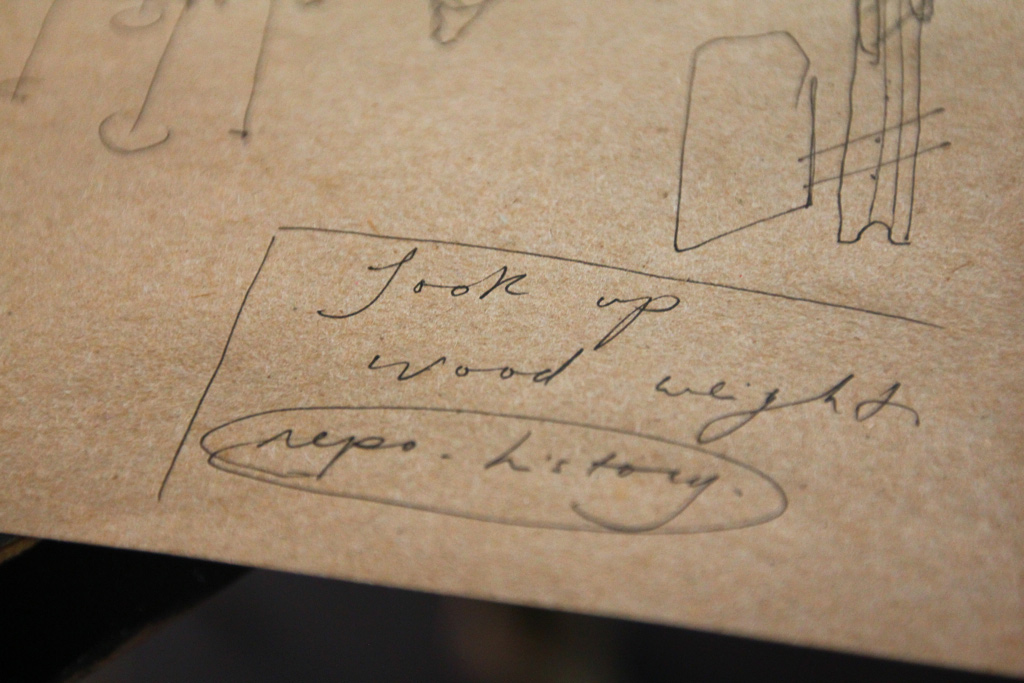 Look up
wood weight
repo. history.